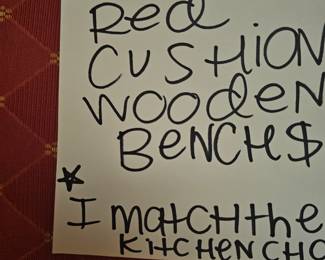 Red
CUSHION
WOODEN
BENCH$
I matcHtHe
KitCHEN CHO